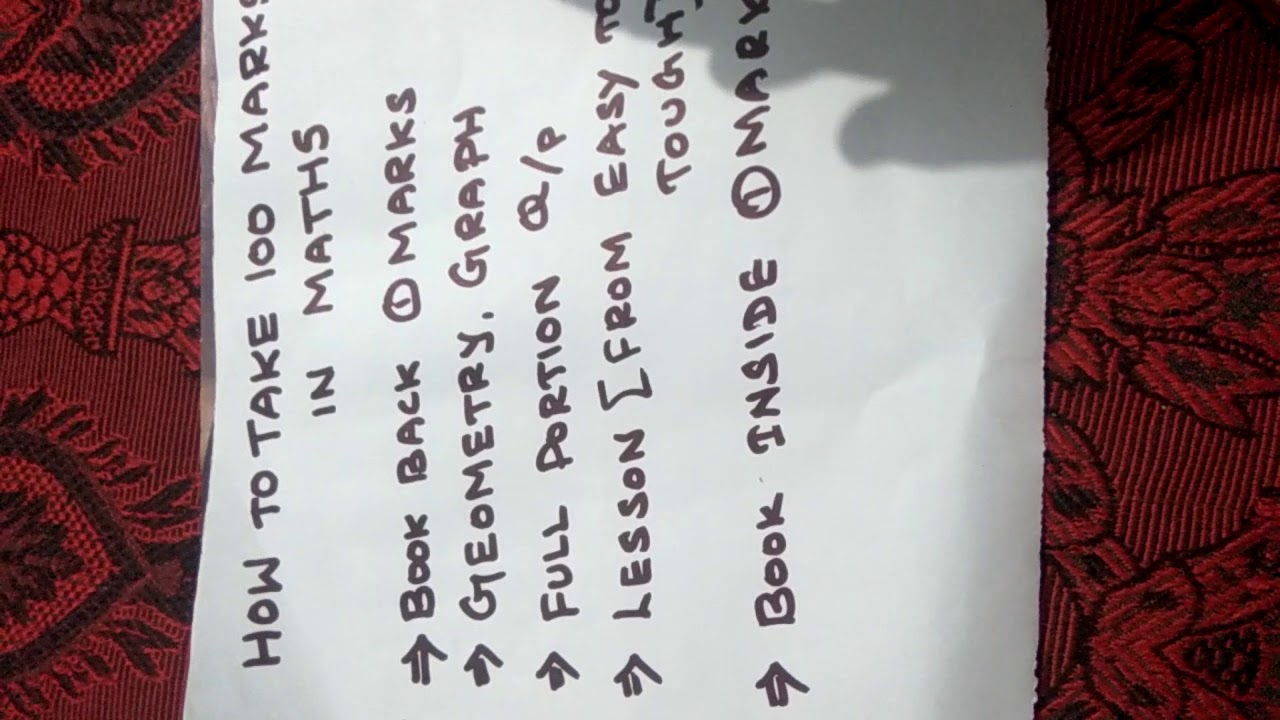 HOW TO TAKE 100 MARKS
IN MATHS
⇒ BOOK BACK ① MARKS
⇒ GEOMETRY, GRAPH
⇒ FULL PORTION Q/P
⇒ LESSON [FROM EASY TO
TOUGH]
⇒ BOOK INSIDE ① MARK